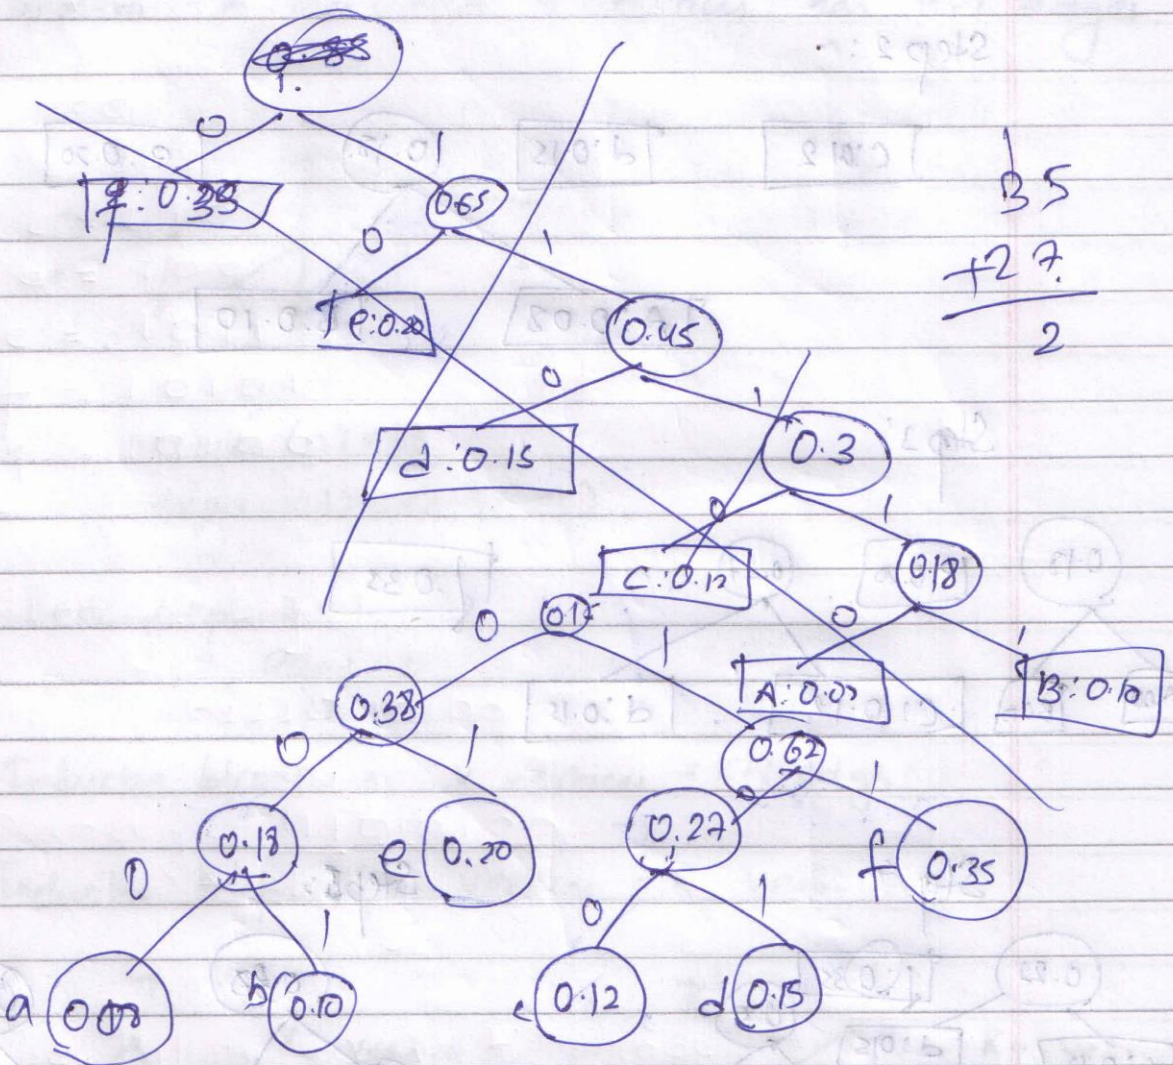 1.
0 1
f: 0.35 0.65
0 1
e: 0.20 0.45
0 1
d: 0.15 0.3
0 1
C: 0.12 0.18
0 1
B: 0.10
35
+27
2
0 1
0.38 0.62
0 1 0 1
0.18 e 0.20 0.27 f 0.35
0 1 0 1
a b 0.10 c 0.12 d 0.15